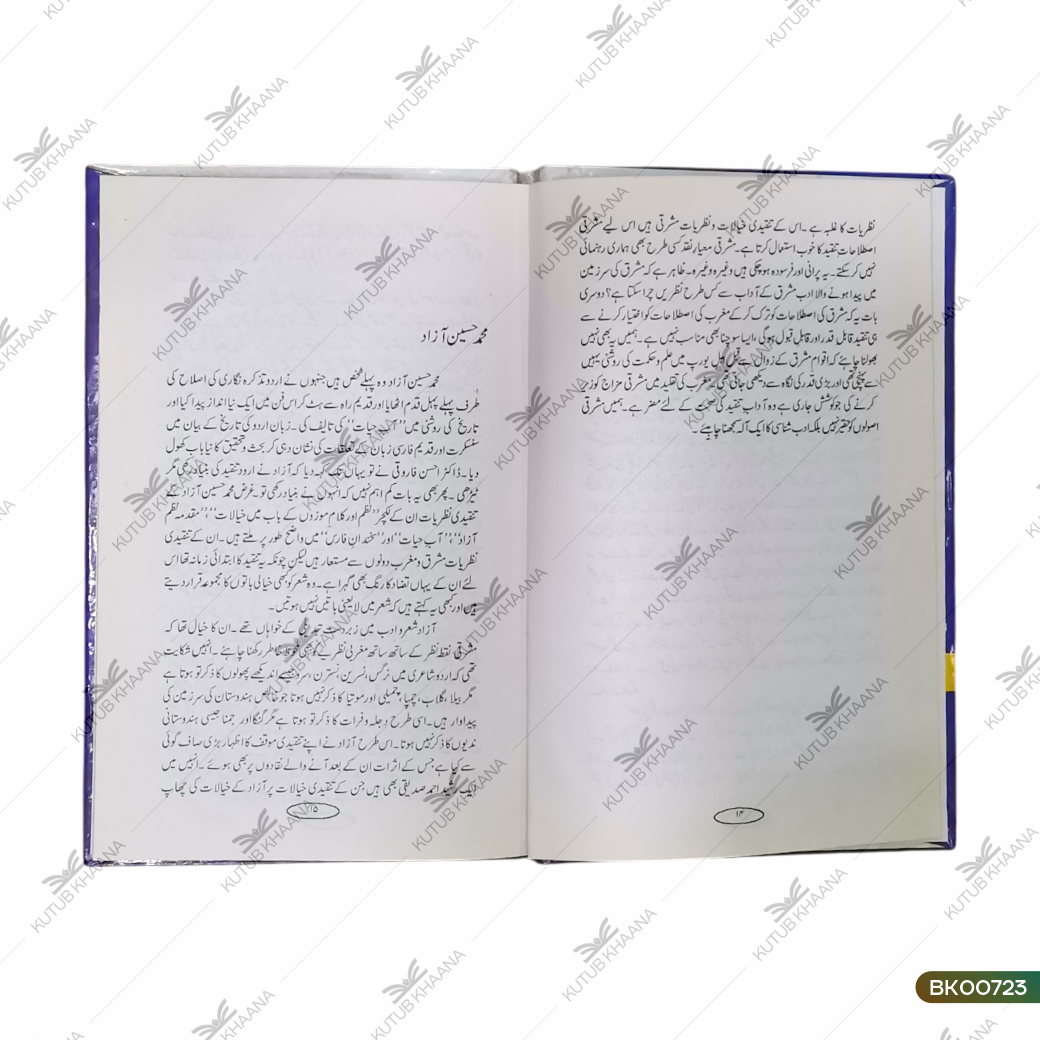 نظریات کا غلبہ ہے ۔ اس کے تنقیدی خیالات و نظریات مشرقی ہیں اس لیے مشرقی
اصطلاحات تنقید کا خوب استعمال کرتا ہے ۔ مشرقی معیار نقد کسی طرح بھی ہماری رہنمائی
نہیں کر سکتے ۔ یہ پرانی اور فرسودہ ہو چکی ہیں وغیرہ وغیرہ ۔ ظاہر ہے کہ مشرق کی سرزمین
میں پیدا ہونے والا ادب مشرق کے آداب سے کس طرح نظریں چرا سکتا ہے؟ دوسری
بات یہ کہ مشرق کی اصطلاحات کو ترک کر کے مغرب کی اصطلاحات کو اختیار کرنے سے
ہی تنقید قابل قدر اور قابل قبول ہوگی ، ایسا سوچنا بھی مناسب نہیں ہے ۔ ہمیں یہ بھی نہیں
بھولنا چاہئے کہ اقوام مشرق کے زوال سے قبل اہل یورپ میں علم و حکمت کی روشنی یہیں
سے پہنچی تھی اور بڑی قدر کی نگاہ سے دیکھی جاتی تھی ۔ مغرب کی تقلید میں مشرقی مزاج کو زیر
کرنے کی جو کوشش جاری ہے وہ آداب تنقید کی صحت کے لئے مضر ہے ۔ ہمیں مشرقی
اصولوں کو حقیر نہیں بلکہ ادب شناسی کا ایک آلہ سمجھنا چاہئے ۔
۱۴
محمد حسین آزاد
محمد حسین آزاد وہ پہلے شخص ہیں جنہوں نے اردو تذکرہ نگاری کی اصلاح کی
طرف پہلے پہل قدم اٹھایا اور قدیم راہ سے ہٹ کر اس فن میں ایک نیا انداز پیدا کیا اور
تاریخ کی روشنی میں ’’آب حیات‘‘ کی تالیف کی ۔ زبان اردو کی تاریخ کے بیان میں
سنسکرت اور قدیم فارسی زبان کے تعلقات کی نشان دہی کر بحث و تحقیق کا نیا باب کھول
دیا ۔ ڈاکٹر احسن فاروقی نے تو یہاں تک کہہ دیا کہ آزاد نے اردو تنقید کی بنیاد رکھی مگر
ٹیڑھی ۔ پھر بھی یہ بات کم اہم نہیں کہ انہوں نے بنیاد رکھی تو ۔ غرض محمد حسین آزاد کے
تنقیدی نظریات ان کے لکچر ’’نظم اور کلام موزوں کے باب میں خیالات‘‘، ’’مقدمہ نظم
آزاد‘‘، ’’آب حیات‘‘ اور ’’سخندان فارس‘‘ میں واضح طور پر ملتے ہیں ۔ ان کے تنقیدی
نظریات مشرق و مغرب دونوں سے مستعار ہیں لیکن چونکہ یہ تنقید کا ابتدائی زمانہ تھا اس
لئے ان کے یہاں تضاد کا رنگ بھی گہرا ہے ۔ وہ شعر کو بھی خیالی باتوں کا مجموعہ قرار دیتے
ہیں اور کبھی یہ کہتے ہیں کہ شعر میں لا یعنی باتیں نہیں ہوتیں ۔
آزاد شعر و ادب میں زبردست تبدیلی کے خواہاں تھے ۔ ان کا خیال تھا کہ
مشرقی نقطہ نظر کے ساتھ ساتھ مغربی نظریے کو بھی ملحوظ رکھنا چاہئے ۔ انہیں شکایت
تھی کہ اردو شاعری میں نرگس، نسرین، نسترن، سرو جیسے اندیکھے پھولوں کا ذکر تو ہوتا ہے
مگر بیلا، گلاب، چمپا، چمیلی اور موتیا کا ذکر نہیں ہوتا جو خالص ہندوستان کی سرزمین کی
پیداوار ہیں ۔ اسی طرح دجلہ و فرات کا ذکر تو ہوتا ہے مگر گنگا اور جمنا جیسی ہندوستانی
ندیوں کا ذکر نہیں ہوتا ۔ اس طرح آزاد نے اپنے تنقیدی موقف کا اظہار بڑی صاف گوئی
سے کیا ہے جس کے اثرات ان کے بعد آنے والے نقادوں پر بھی ہوئے ۔ انہیں میں
ایک رشید احمد صدیقی بھی ہیں جن کے تنقیدی خیالات پر آزاد کے خیالات کی چھاپ
۲۱۵
KUTUB KHAANA
BK00723